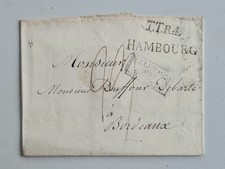 T.T.R.4.
HAMBOURG
Monsieur
Monsieur Duffour Debarte
à
Bordeaux